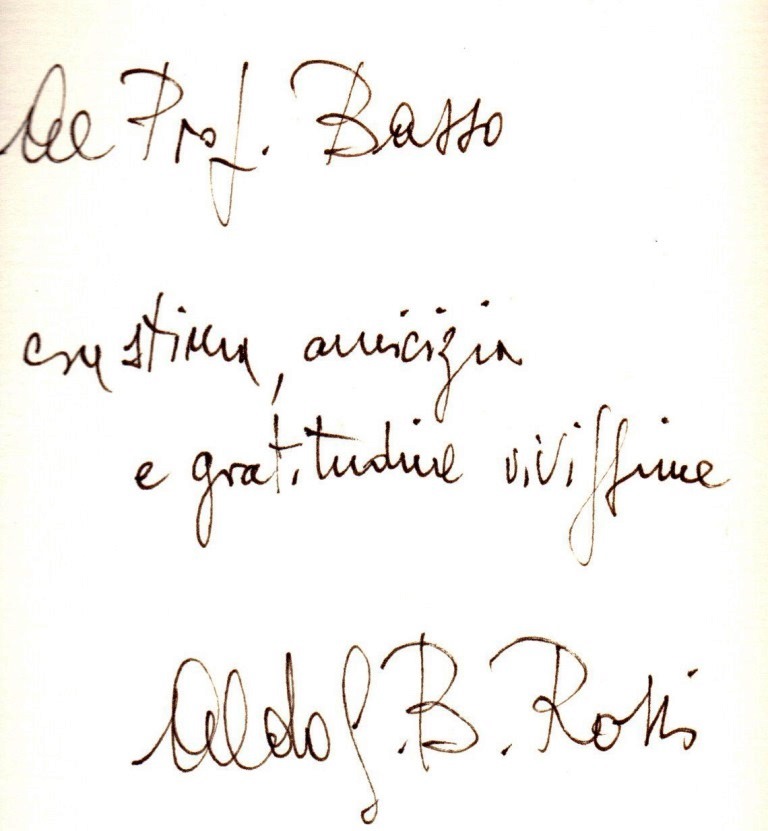 Al Prof. Basso
con stima, amicizia
e gratitudine vivissime
Aldo G. B. Rossi